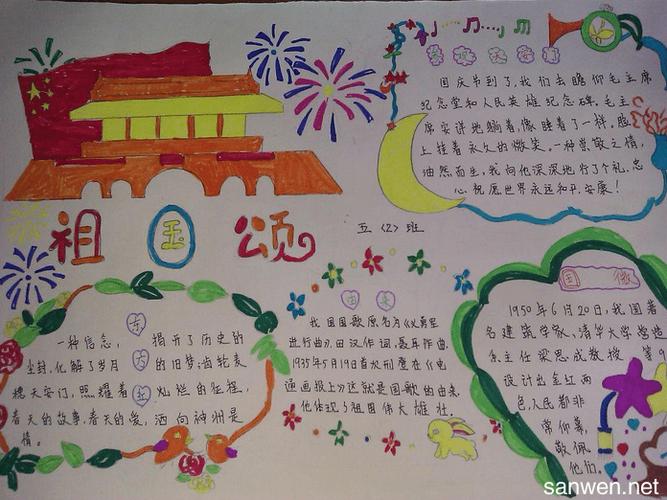 祖国颂
五〈2〉班
国庆节到了,我们去瞻仰毛主席
纪念堂和人民英雄纪念碑。毛主
席安详地躺着,像睡着了一样。脸
上挂着永久的微笑,一种崇敬之情,
油然而生,我向他深深地行了个礼。忠
心祝愿世界永远和平,安康!
一种信念,
揭开了历史的
尘封,化解了岁月
的旧梦;齿轮麦
穗天安门,照耀着
灿烂的征程,
春天的故事,春天的爱,洒向神州是
情。
东
方
红
由来
我国国歌原名为《义勇军
进行曲》,田汉作词,聂耳作曲,
1935年5月19日首次刊登在《电
通画报上》这就是国歌的由来,
他体现了祖国伟大雄壮。
国徽
1950年6月20日,我国著
名建筑学家,清华大学营造
系主任梁思成教授
设计出金红两
色,人民都非
常仰慕
敬佩
他们。
sanwen.net